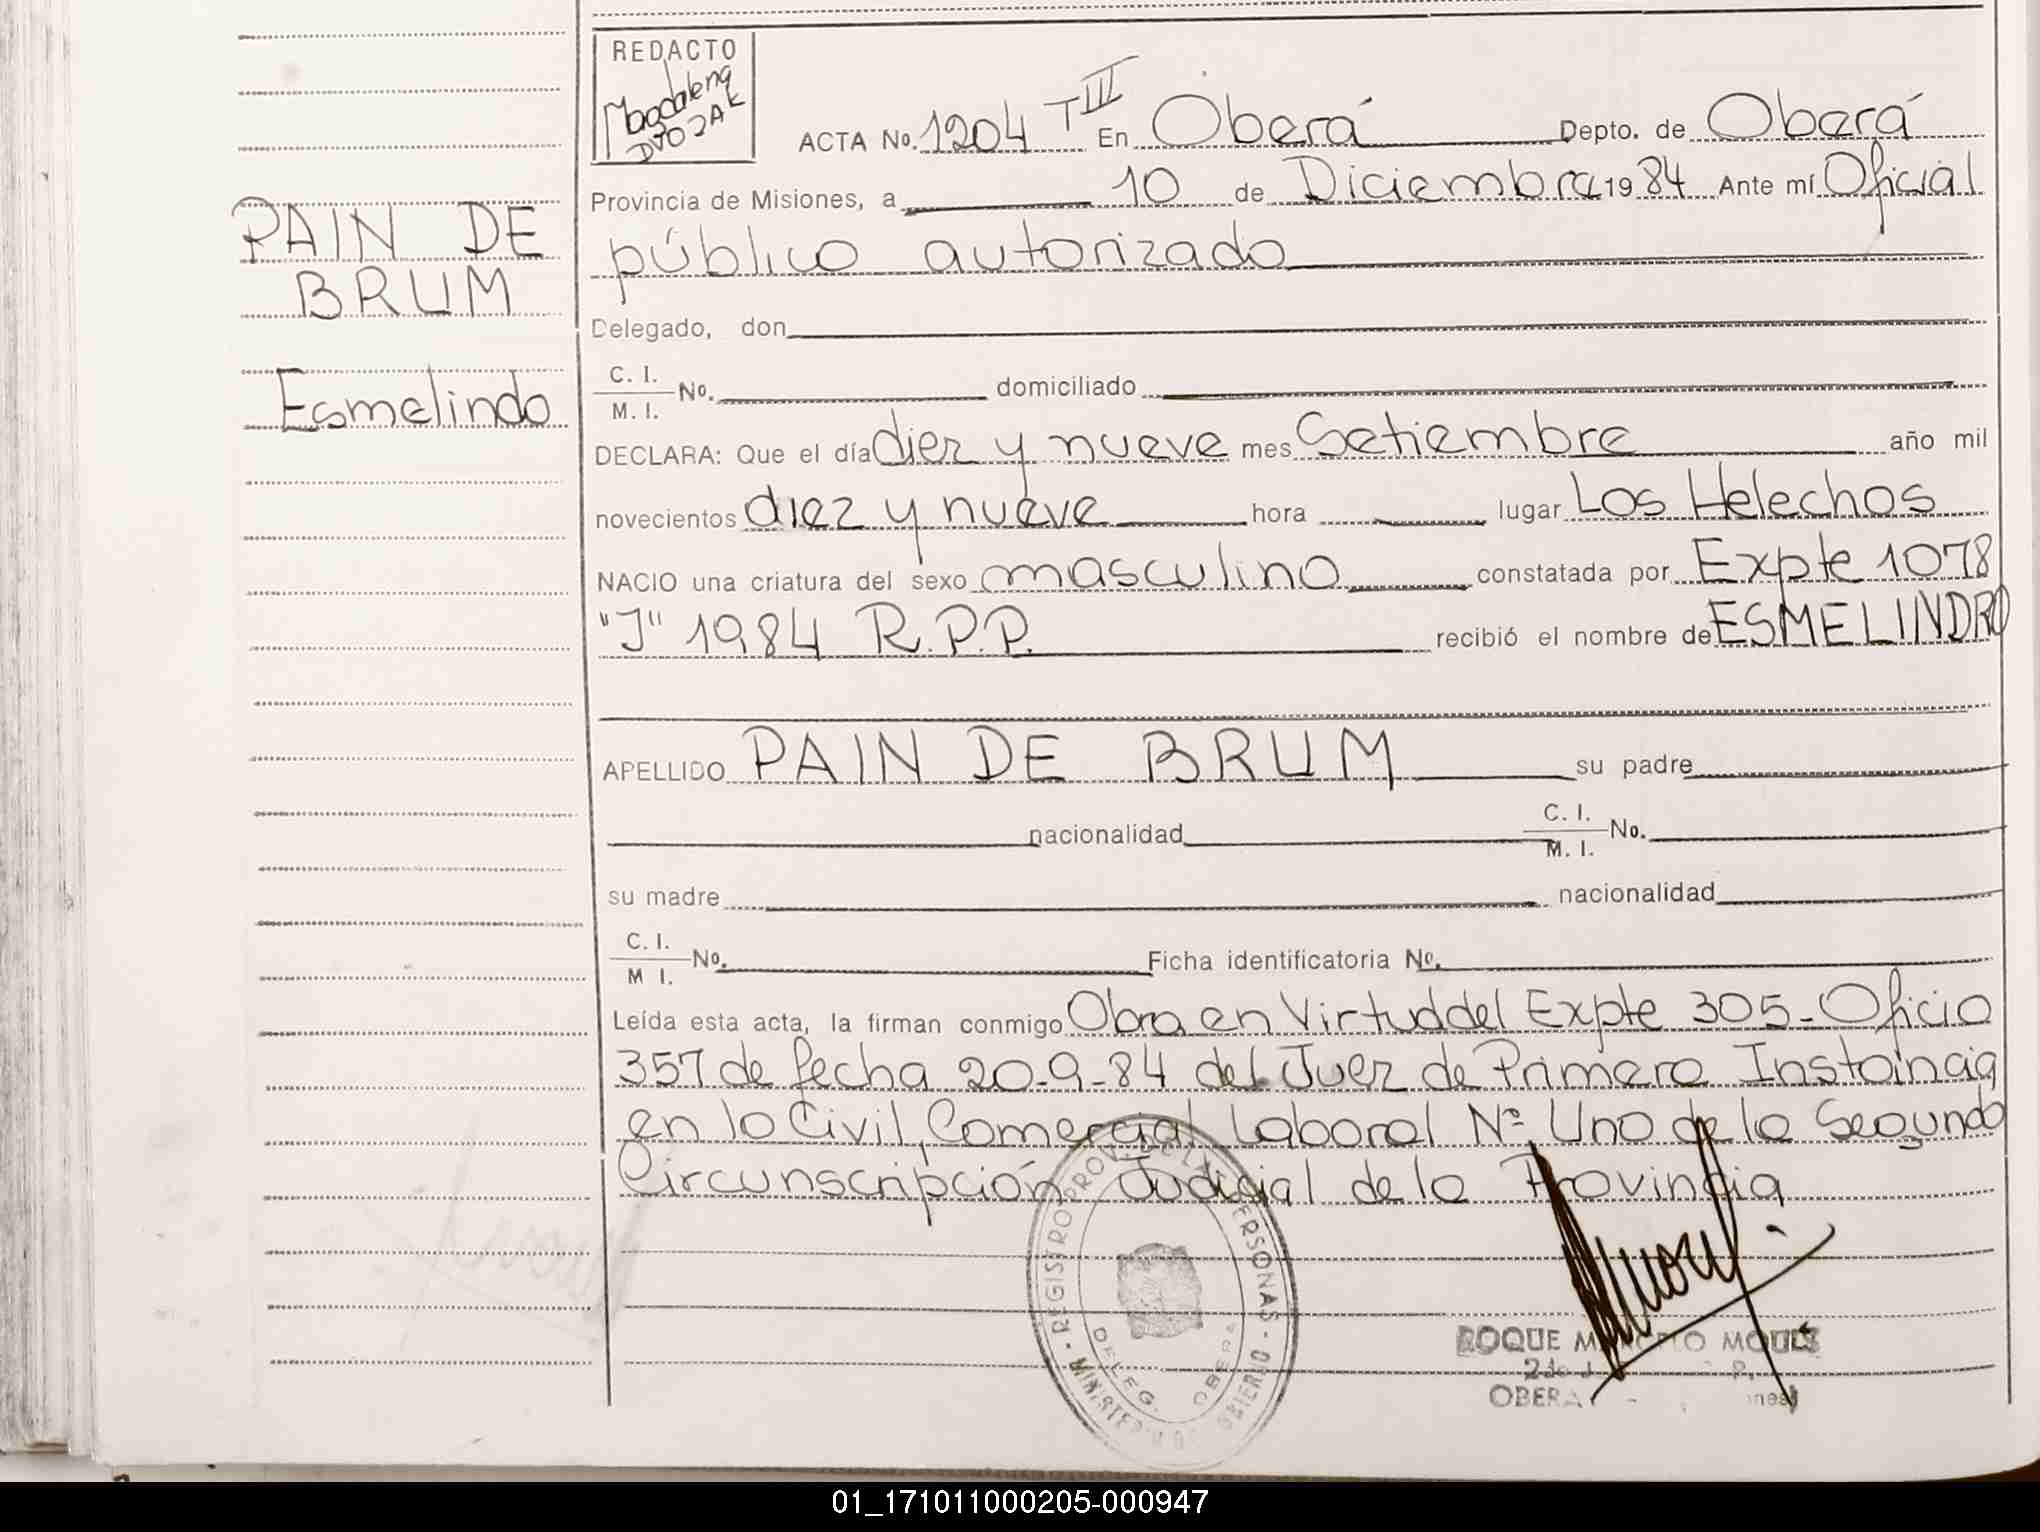 REDACTO
Magdalena
DVOJAK
ACTA No. 1204 T III En Oberá Depto. de Oberá
Provincia de Misiones, a 10 de Diciembre 1984 Ante mí Oficial
público autorizado
Delegado, don
C. I.
M. I. No. domiciliado
DECLARA: Que el día diez y nueve mes Setiembre año mil
novecientos diez y nueve hora lugar Los Helechos
NACIO una criatura del sexo masculino constatada por Expte 1078
"J" 1984 R.P.P. recibió el nombre de ESMELINDRO
APELLIDO PAIN DE BRUM su padre
nacionalidad C. I.
M. I. No.
su madre nacionalidad
C. I.
M I. No. Ficha identificatoria No.
Leída esta acta, la firman conmigo Obra en Virtud del Expte 305-Oficio
357 de fecha 20-9-84 del Juez de Primera Instancia
en lo Civil, Comercial, Laboral Nº Uno de la Segunda
Circunscripción Judicial de la Provincia
PAIN DE
BRUM
Esmelindo
REGISTRO PROV. DE LAS PERSONAS - MINISTERIO DE GOBIERNO -
DELEG. OBERA
ROQUE
OBERA
01_171011000205-000947